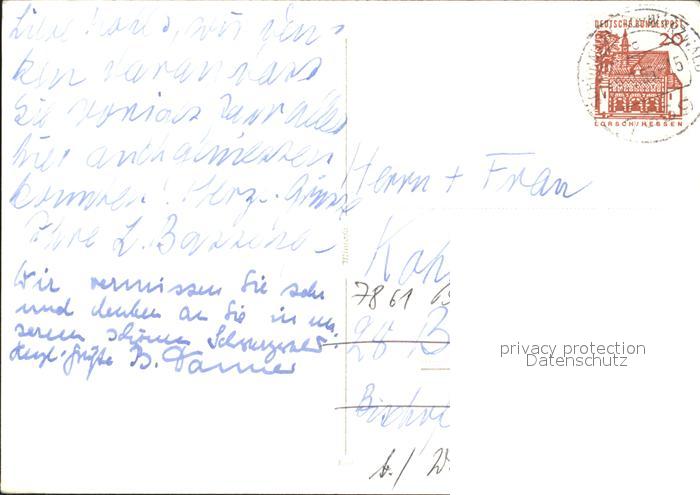 wir den-
ken daran dass
Sie voriges Jahr alles
hier auch geniessen
konnten! Herz. Grüsse
Ihre L.
Wir vermissen Sie sehr
und denken an Sie in un-
serem schönen Schwarzwald.
Herzl. Grüße B. Danner
DEUTSCHE BUNDESPOST
20
LORSCH/HESSEN
Herrn + Frau
7861
28 B
Bischof
b./ W
privacy protection
Datenschutz